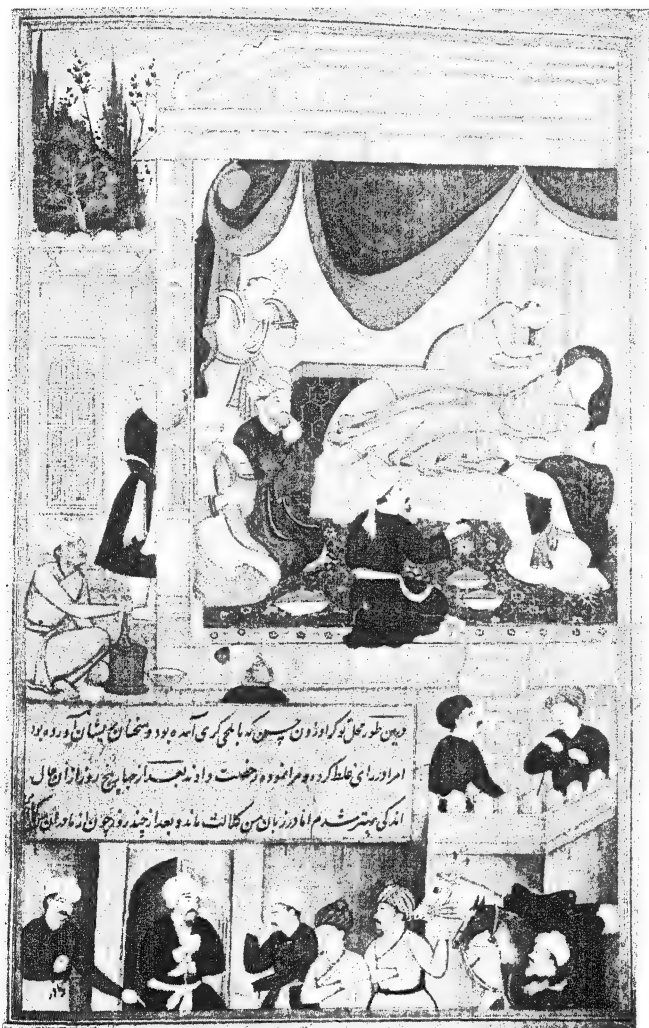 درین طور محل نوکر اوزون حسن که بایلچی گری آمده بود و سخنان پریشان آورده بود
امرا در رای غلط کرده مرا نموده رخصت دادند بعد از چهار پنج روز ازان حال
اندکی بهتر شدم اما در زبان من کلالت ماند و بعد از چند روز چون از مادر من